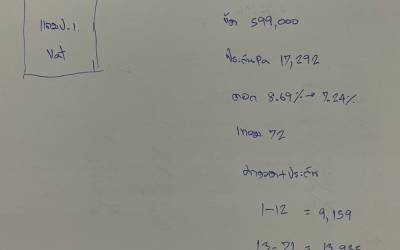 แถมป.1
Vat
จัด 599,000
ประกันPa 17,292
ดอก 8.69% → 7.24%
งวด 72
ค่างวด+ประกัน
1-12 = 9,159
13-71 =